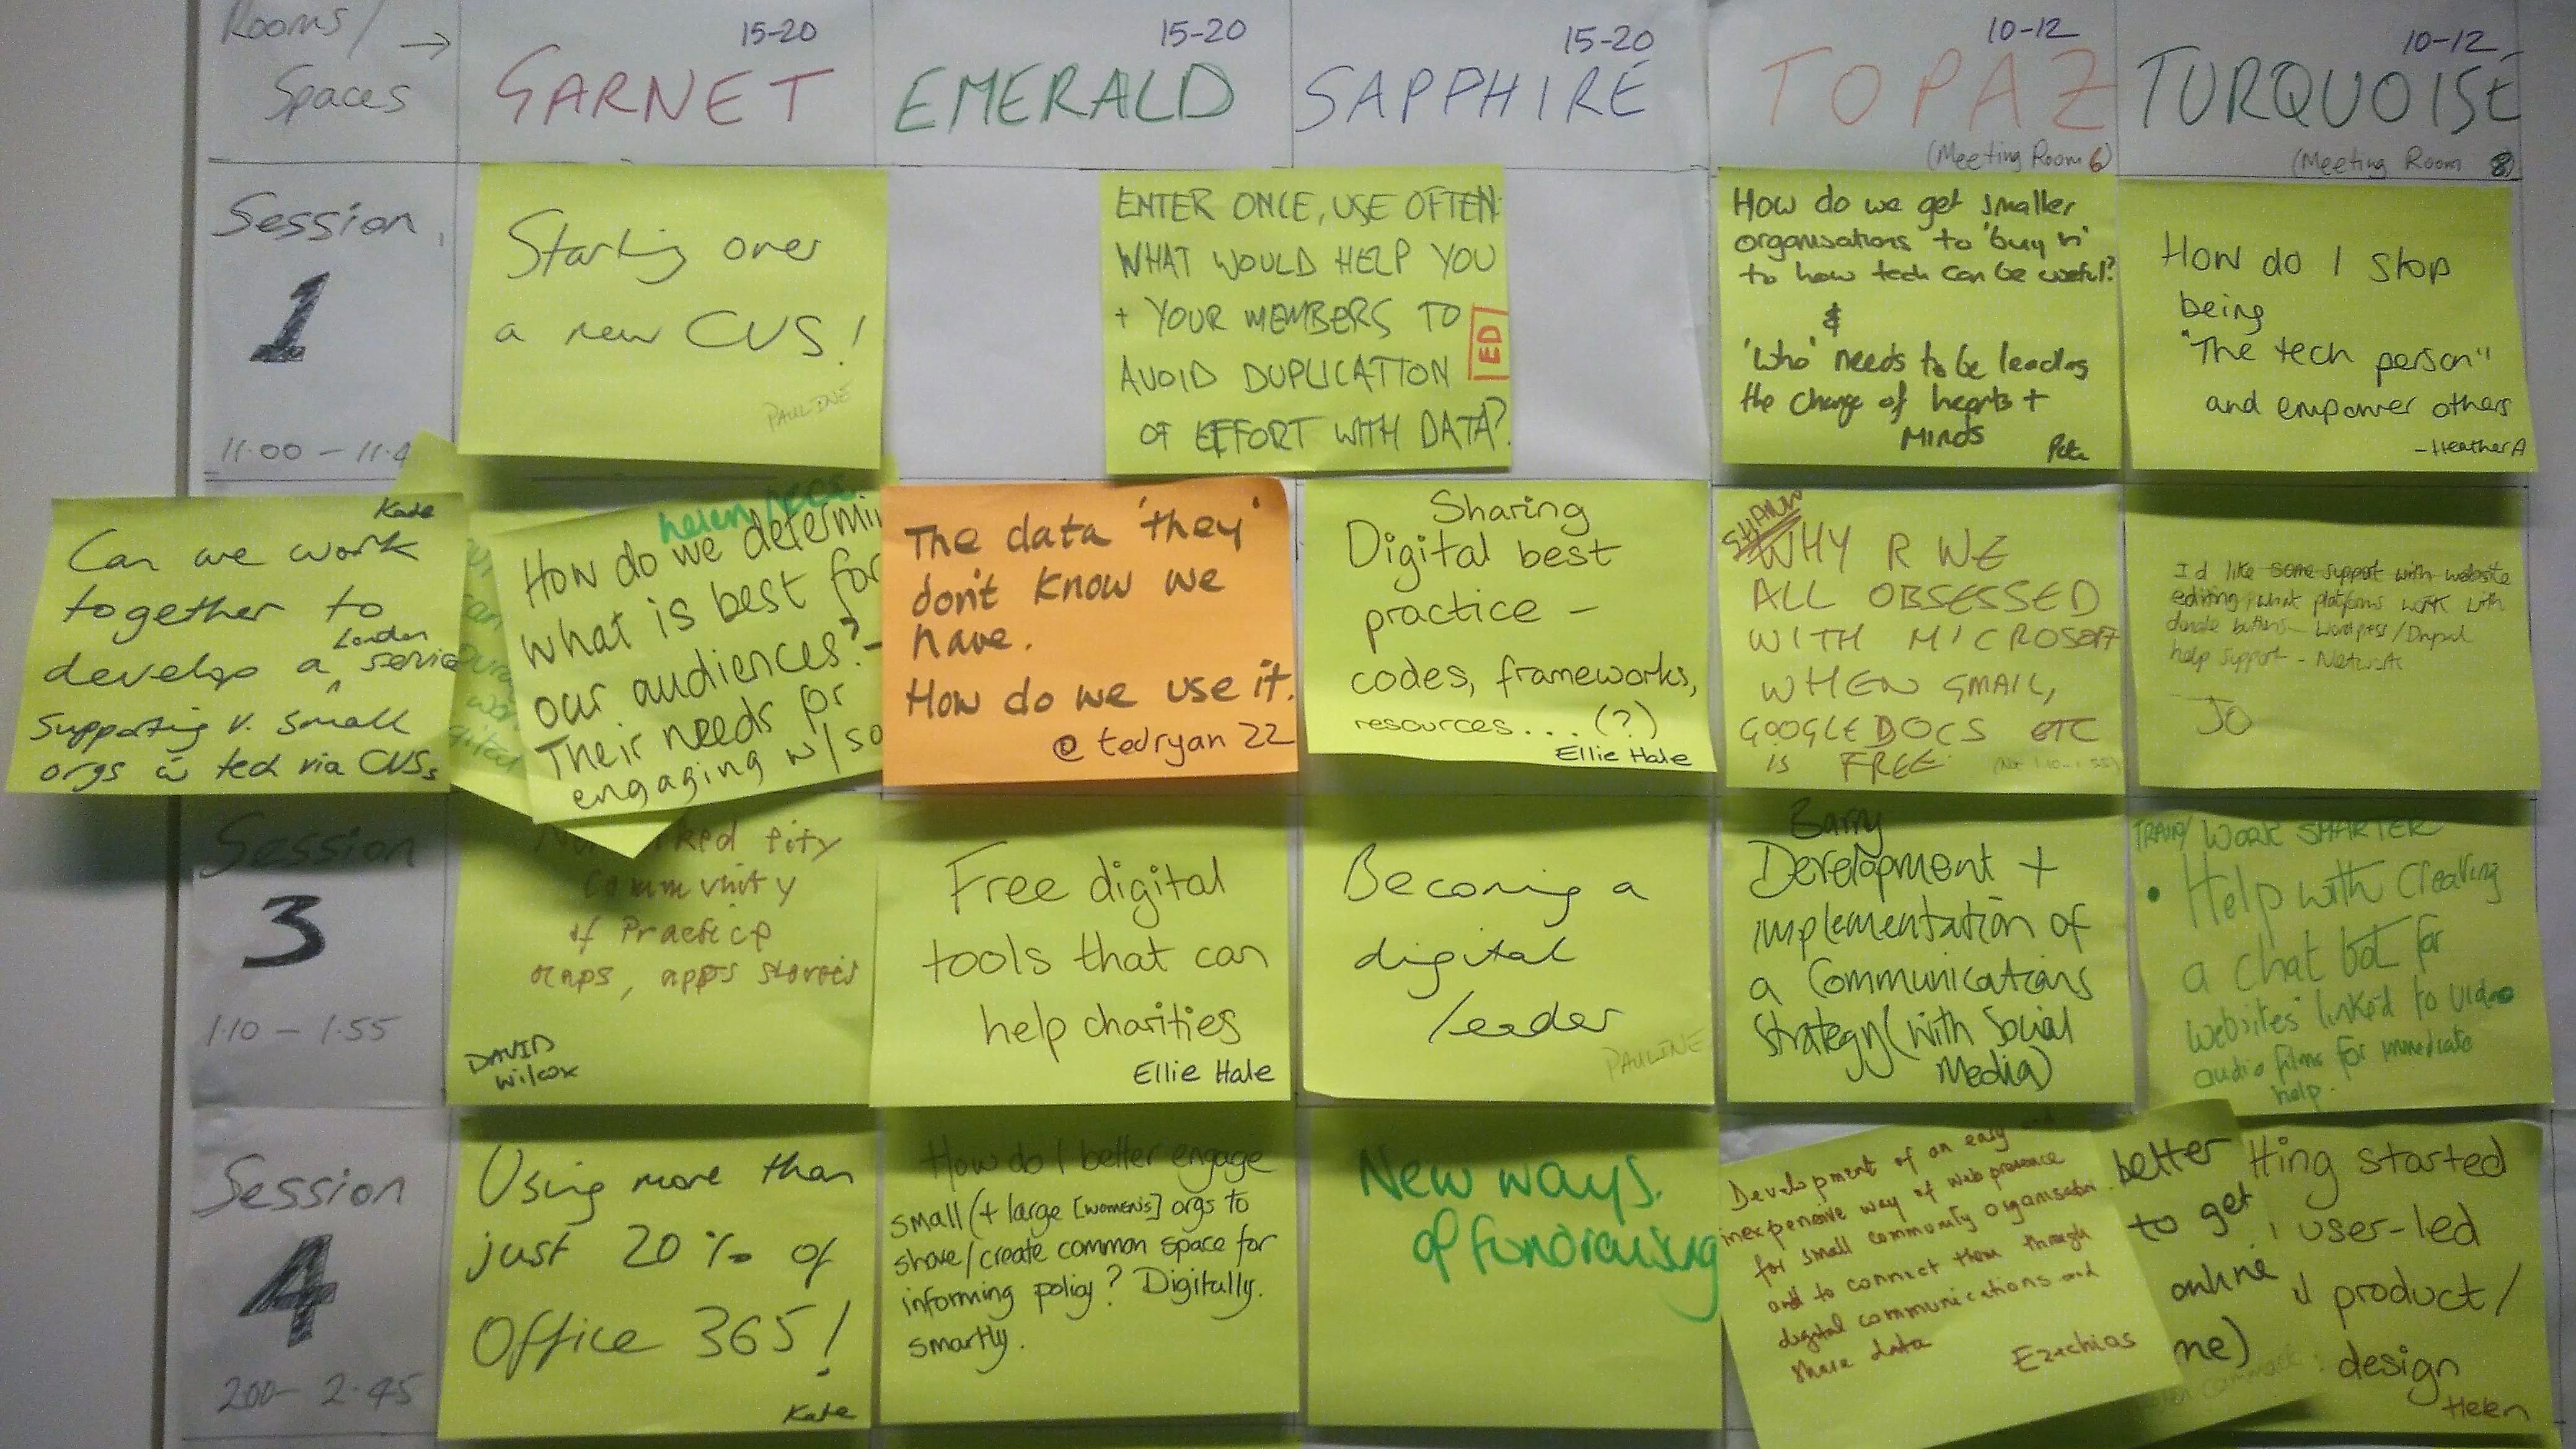 Rooms/
Spaces
→
15-20
GARNET
15-20
EMERALD
15-20
SAPPHIRE
10-12
TOPAZ
(Meeting Room 6)
10-12
TURQUOISE
(Meeting Room 8)
Session
1
11.00 - 11.4
Starting over
a new CVS!
PAULINE
ENTER ONCE, USE OFTEN:
WHAT WOULD HELP YOU
+ YOUR MEMBERS TO
AVOID DUPLICATION
OF EFFORT WITH DATA?
ED
How do we get smaller
organisations to 'buy in'
to how tech can be useful?
&
'Who' needs to be leading
the change of hearts +
Minds
Pete
How do I stop
being
"The tech person"
and empower others
- Heather A
Kate
Can we work
together to
London
develop a service
supporting v. small
orgs w tech via CVSs
can
helen
How do we determi
what is best for
our audiences? -
Their needs for
engaging w/ so
The data 'they'
don't know we
have.
How do we use it.
@tedryan22
Sharing
Digital best
practice -
codes, frameworks,
resources... (?)
Ellie Hale
WHY R WE
ALL OBSESSED
WITH MICROSOFT
WHEN GMAIL,
GOOGLE DOCS ETC
IS FREE
(Not 1.10-1.55)
I'd like some support with website
editing, what platforms work with
donate buttons - Wordpress/Drupal
help support - Network
Jo
Session
3
1.10 - 1.55
ked city
Community
of Practice
maps, apps stories
DAVID
Wilcox
Free digital
tools that can
help charities
Ellie Hale
Becoming a
digital
leader
PAULINE
Barry
Development +
implementation of
a Communications
Strategy (with Social
Media)
TRAIN/ WORK SMARTER
• Help with creating
a chat bot for
websites linked to video
audio films for immediate
help.
Session
4
2.00 - 2.45
Using more than
just 20% of
Office 365!
Kate
How do I better engage
small (+ large [women's] orgs to
share/create common space for
informing policy? Digitally.
smartly.
New ways
of fundraising
Development of an easy and
inexpensive way of web presence
for small community organisation
and to connect them through
digital communications and
share data
Ezechias
better
to get
online
me)
tting started
user-led
product/
design
Helen